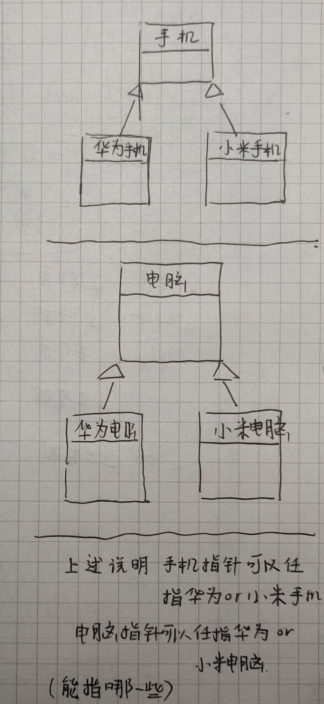 手机
华为手机
小米手机
电脑
华为电脑
小米电脑
上述说明 手机指针可以任
指华为or小米手机
电脑指针可以任指华为or
小米电脑
(能指哪一些)